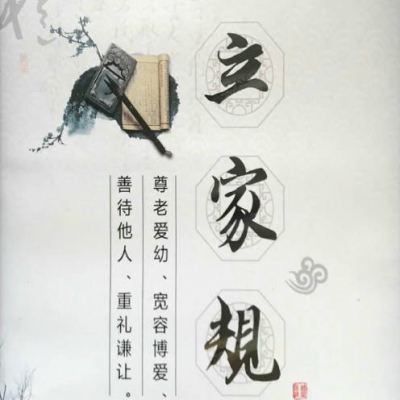 立家规
尊老爱幼、宽容博爱、
善待他人、重礼谦让。